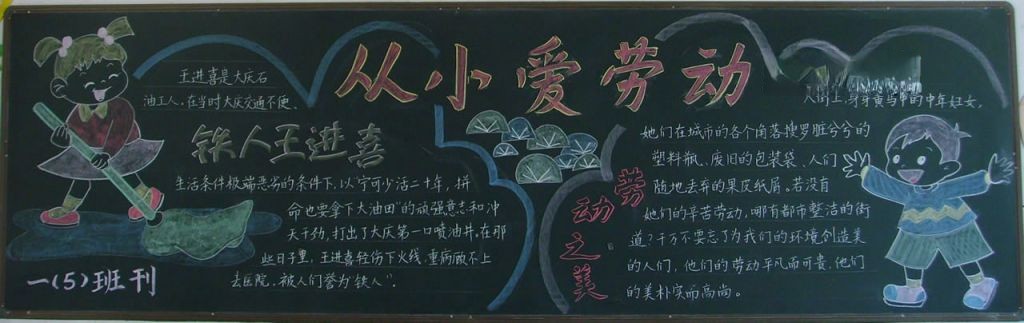 从小爱劳动
王进喜是大庆石
油工人。在当时大庆交通不便、
铁人王进喜
生活条件极端恶劣的条件下,以“宁可少活二十年,拼
命也要拿下大油田”的顽强意志和冲
天干劲,打出了大庆第一口喷油井。在那
些日子里,王进喜轻伤下火线,重病顾不上
去医院,被人们誉为“铁人”。
一(5)班刊
劳动之美
身穿黄马甲的中年妇女。
她们在城市的各个角落搜罗脏兮兮的
塑料瓶、废旧的包装袋、人们
随地丢弃的果皮纸屑。若没有
她们的辛苦劳动,哪有都市整洁的街
道?千万不要忘了为我们的环境创造美
的人们,他们的劳动平凡而可贵,他们
的美朴实而高尚。